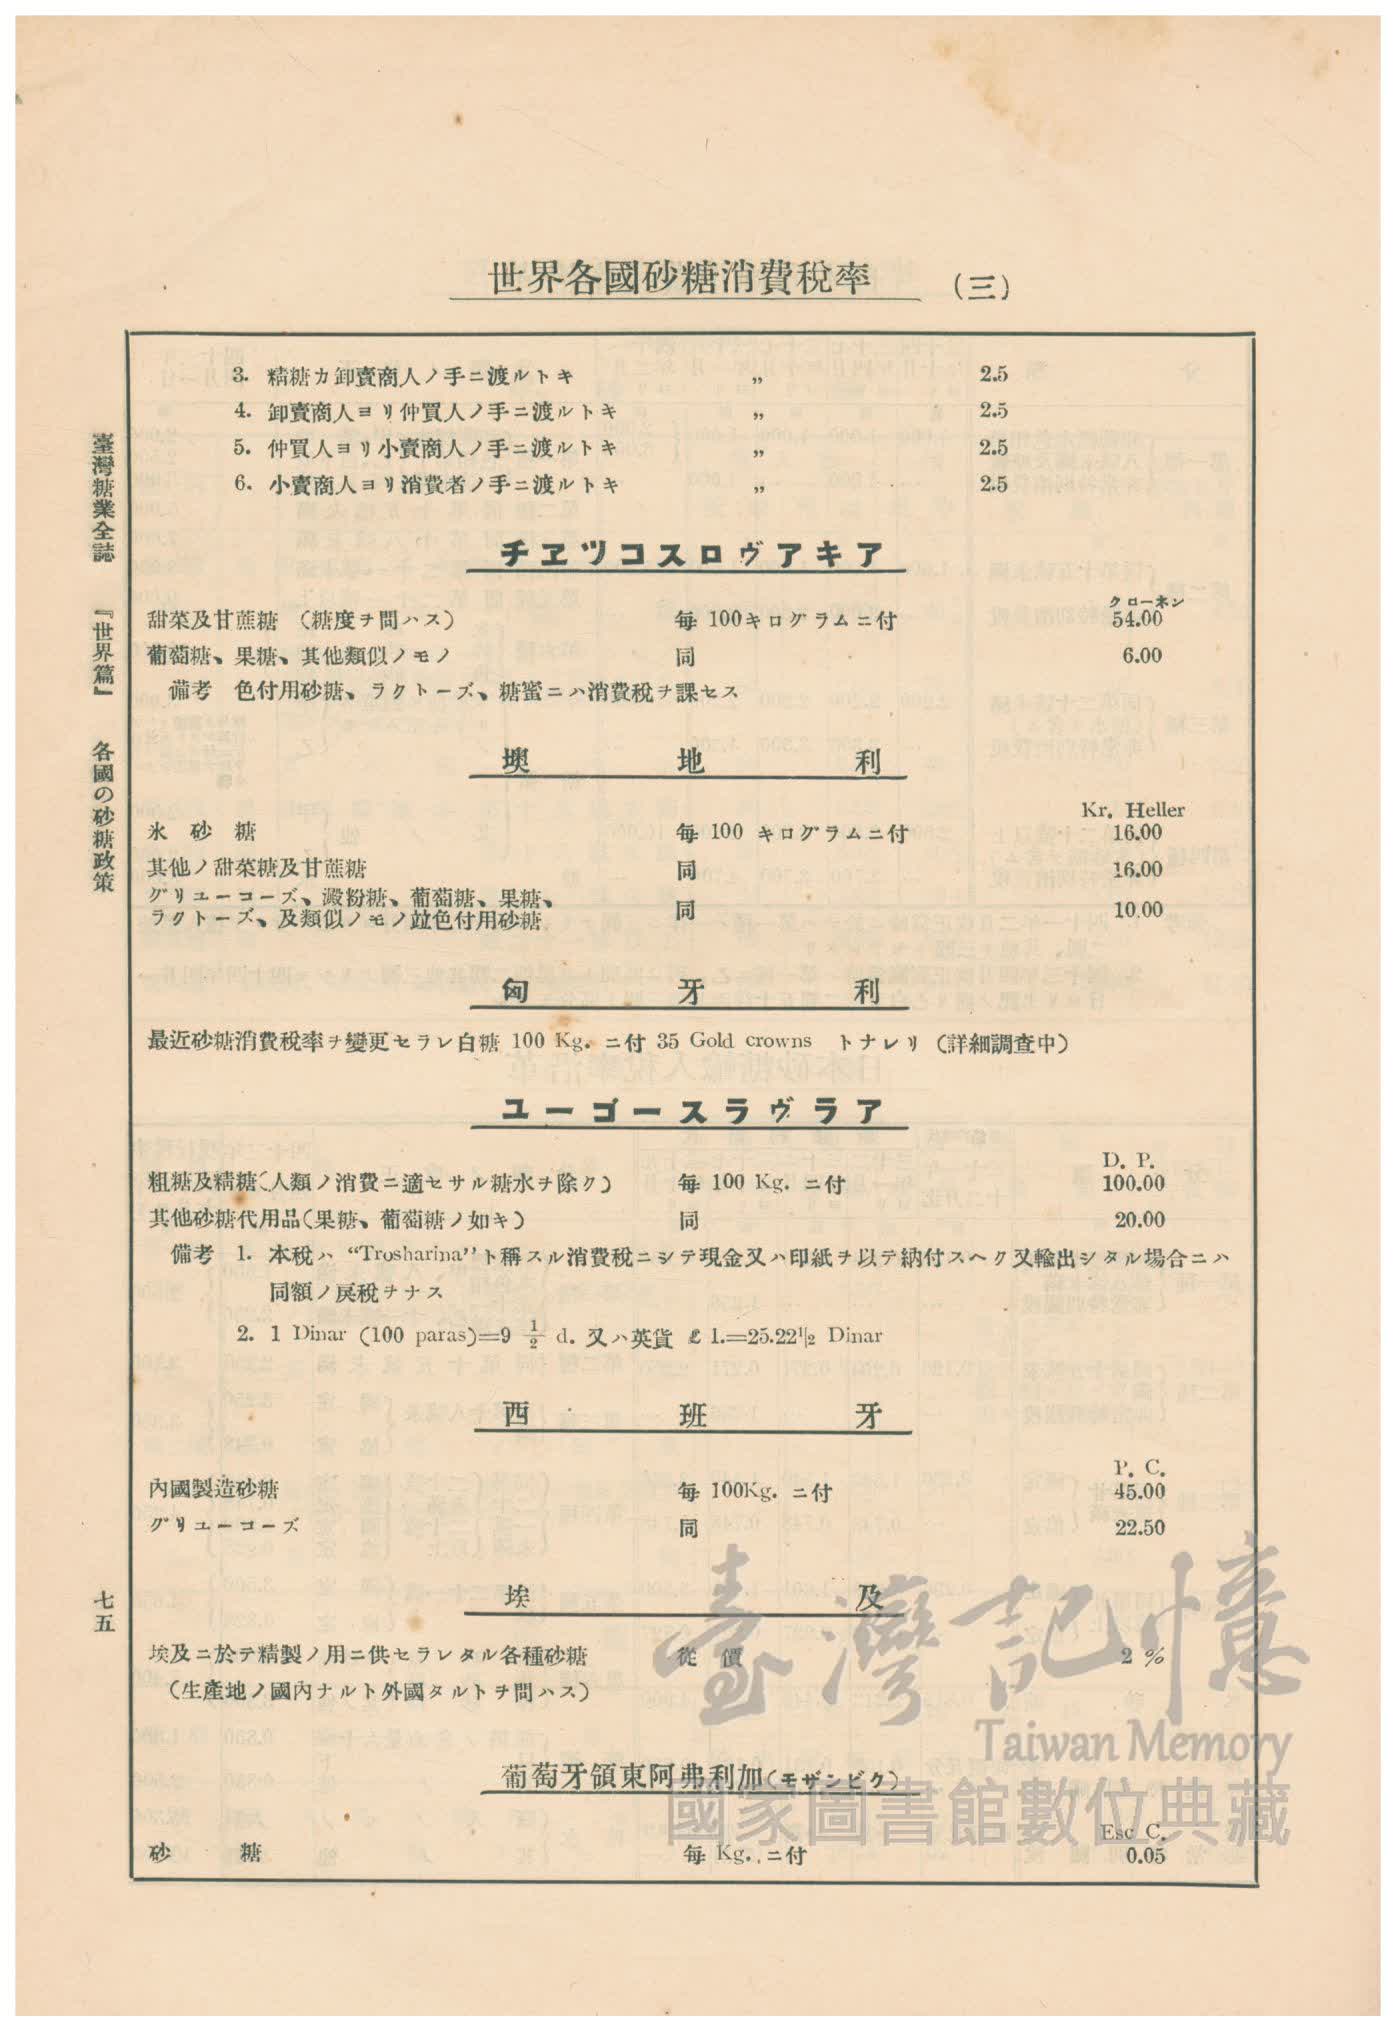 世界各國砂糖消費稅率 (三)
3. 精糖カ卸賣商人ノ手ニ渡ルトキ 〃 2.5
4. 卸賣商人ヨリ仲買人ノ手ニ渡ルトキ 〃 2.5
5. 仲買人ヨリ小賣商人ノ手ニ渡ルトキ 〃 2.5
6. 小賣商人ヨリ消費者ノ手ニ渡ルトキ 〃 2.5
チヱツコスロヴアキア
クローネン
甜菜及甘蔗糖 (糖度ヲ問ハス) 每 100キログラムニ付 54.00
葡萄糖、果糖、其他類似ノモノ 同 6.00
備考 色付用砂糖、ラクトーズ、糖蜜ニハ消費稅ヲ課セス
墺地利
Kr. Heller
氷砂糖 每 100 キログラムニ付 16.00
其他ノ甜菜糖及甘蔗糖 同 16.00
グリユーコーズ、澱粉糖、葡萄糖、果糖、
ラクトーズ、及類似ノモノ竝色付用砂糖 同 10.00
匈牙利
最近砂糖消費稅率ヲ變更セラレ白糖 100 Kg. ニ付 35 Gold crowns トナレリ (詳細調査中)
ユーゴースラヴラア
D. P.
粗糖及精糖(人類ノ消費ニ適セサル糖水ヲ除ク) 每 100 Kg. ニ付 100.00
其他砂糖代用品(果糖、葡萄糖ノ如キ) 同 20.00
備考 1. 本稅ハ “Trosharina”ト稱スル消費稅ニシテ現金又ハ印紙ヲ以テ納付スヘク又輸出シタル場合ニハ
同額ノ戾稅ヲナス
2. 1 Dinar (100 paras)=9 1/2 d. 又ハ英貨 £ 1.=25.22 1/2 Dinar
西班牙
P. C.
內國製造砂糖 每 100Kg. ニ付 45.00
グリユーコーズ 同 22.50
埃及
埃及ニ於テ精製ノ用ニ供セラレタル各種砂糖 從價 2 %
(生產地ノ國內ナルト外國タルトヲ問ハス)
葡萄牙領東阿弗利加(モザンビク)
Esc C.
砂糖 每 Kg. ニ付 0.05
臺灣糖業全誌 『世界篇』 各國の砂糖政策
七五
臺灣記憶
Taiwan Memory
國家圖書館數位典藏